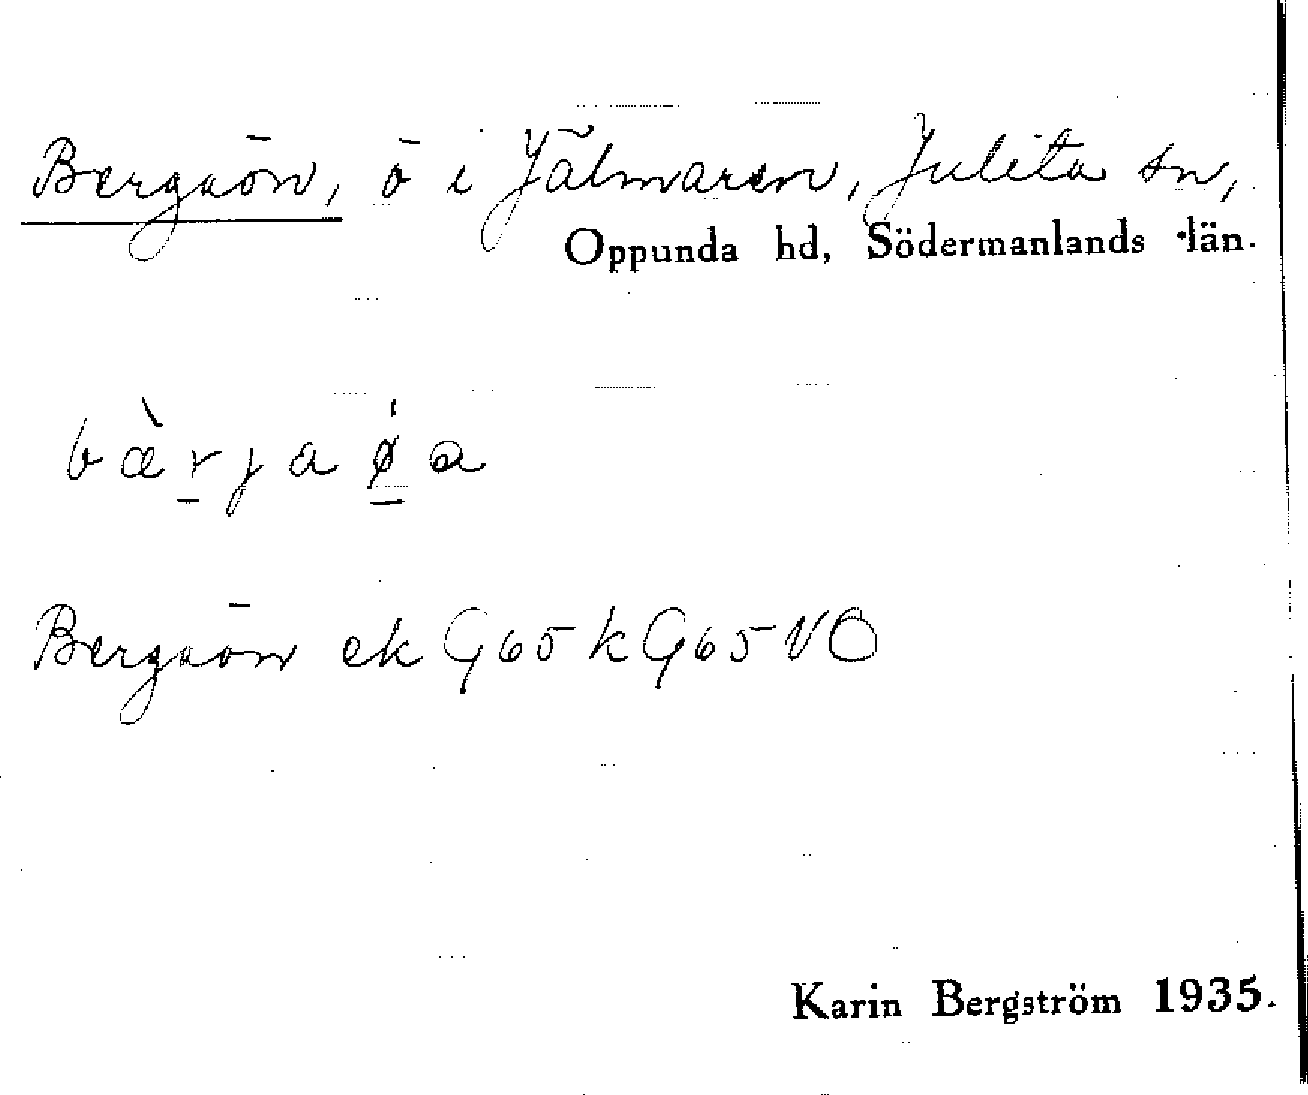 Bergaön, ö i Jälmaren, Julita sn,
Oppunda hd, Södermanlands län.
bæ̀r̲jaǿ̲a
Bergaön ek G65kG65NO
Karin Bergström 1935.